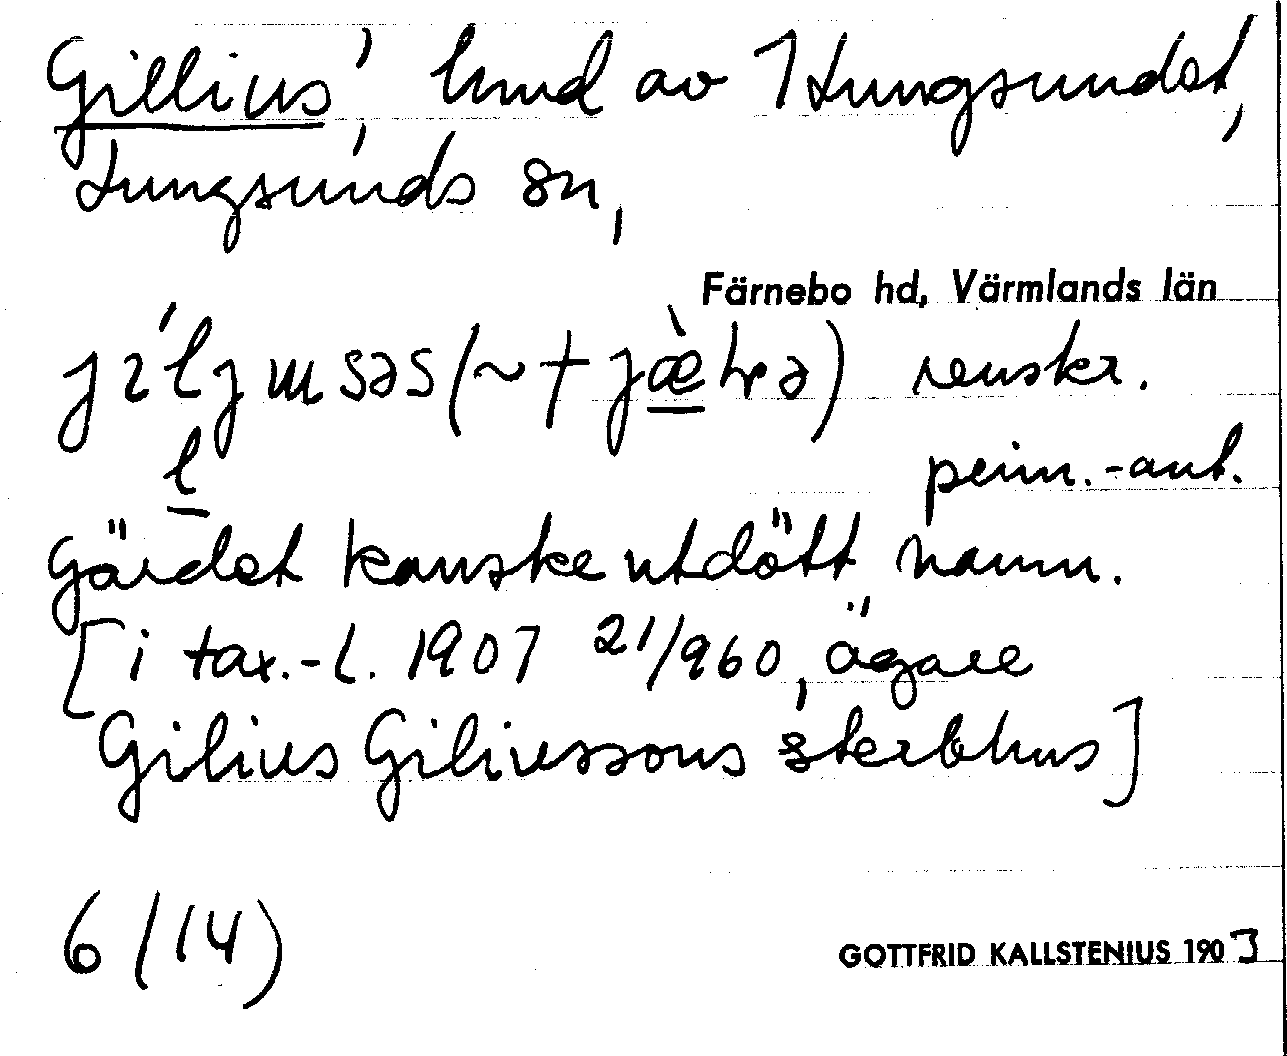 Gillius', hmd av 1 Lungsundet,
Lungsunds sn,
Färnebo hd, Värmlands län
renskr.
l penn.-ant.
Gärdet kanske utdött namn.
[i tax.-l. 1907 21/960, ägare
Gilius Giliussons sterbhus]
6 (14)
GOTTFRID KALLSTENIUS 190